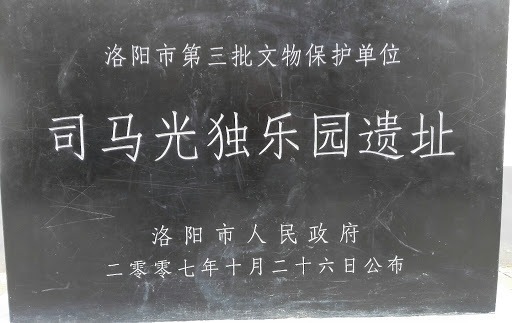 洛阳市第三批文物保护单位
司马光独乐园遗址
洛阳市人民政府
二零零七年十月二十六日公布